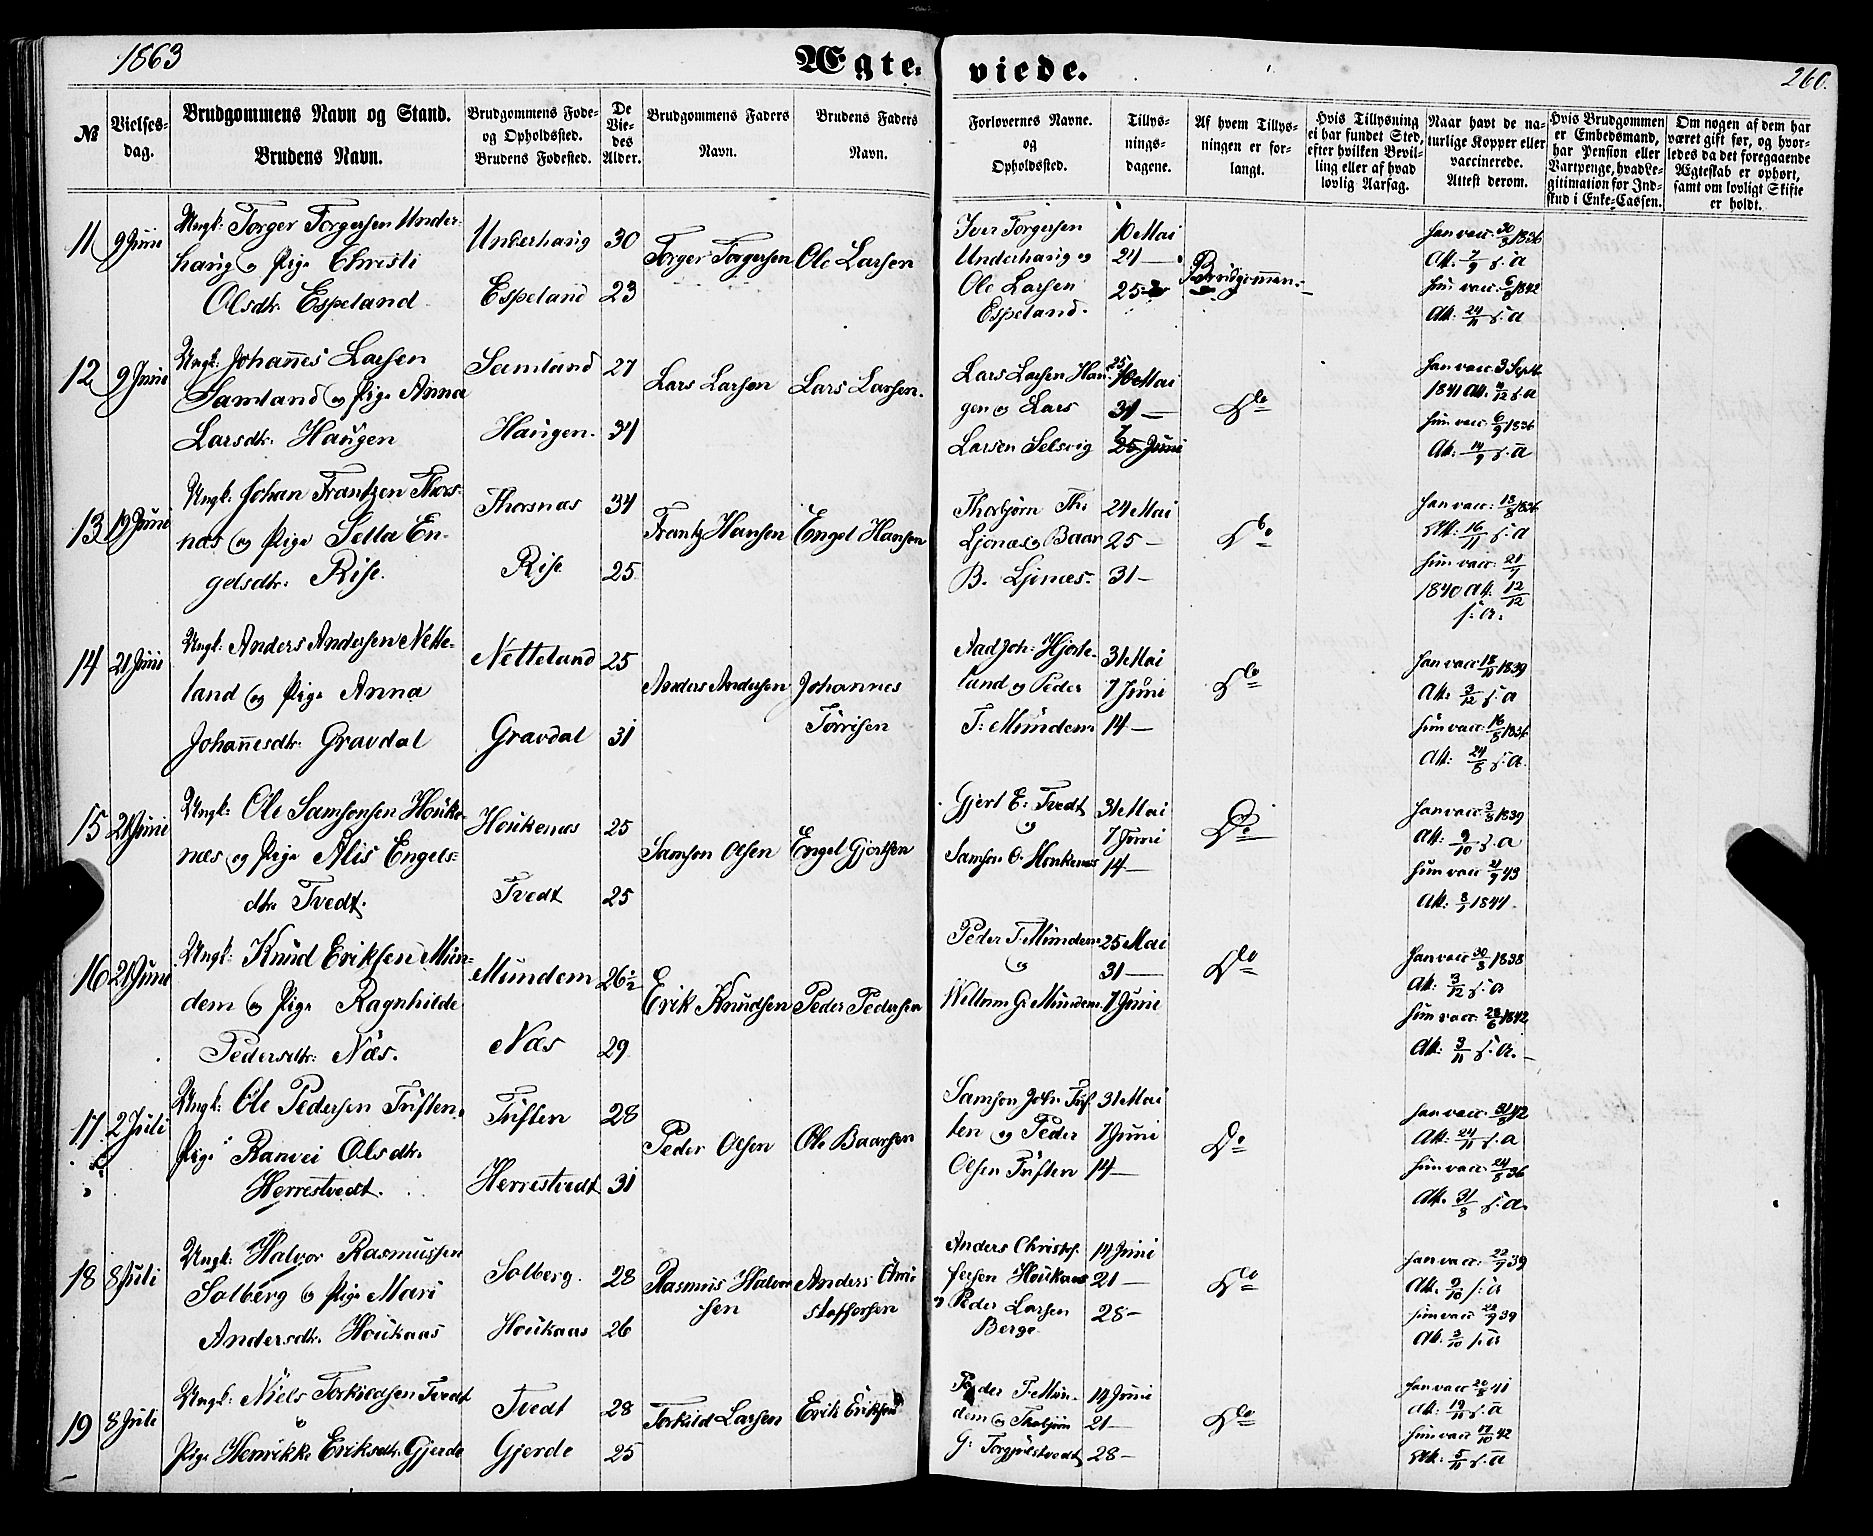 1863
Ægte- viede.
260.
№
Vielses-
dag.
Brudgommens Navn og Stand.
Brudens Navn.
Brudgommens Føde-
og Opholdssted.
Brudens Fødested.
De
Vie-
des
Alder.
Brudgommens Faders
Navn.
Brudens Faders
Navn.
Forlovernes Navne.
og
Opholdssted.
Tillys-
nings-
dagene.
Af hvem Tillys-
ningen er for-
langt.
Hvis Tillysning
ei har fundet Sted,
efter hvilken Bevil-
ling eller af hvad
lovlig Aarsag.
Naar havt de na-
turlige Kopper eller
vaccinerede.
Attest derom.
Hvis Brudgommen
er Embedsmand,
har Pension eller
Vartpenge, hvad Le-
gitimation for Ind-
skud i Enke-Cassen.
Om nogen af dem har
været gift før, og hvor-
ledes da det foregaaende
Ægteskab er ophørt,
samt om lovligt Skifte
er holdt.
11 9 Juni
Ungk: Torger Torgersen Under-
haug og Pige Christi
Olsdtr. Espeland
Underhaug 30
Espeland 23
Torger Torgersen Ole Larsen
Iver Torgersen
Underhaug og
Ole Larsen
Espeland.
10 Mai
24 —
25
Brudgommen.
han vacc. 30/9 1836
Att. 7/9 s. a
hun vacc. 6/8 1842
Att. 24/11 s. a
12 9 Juni
Ungk: Johannes Larsen
Samland og Pige Anna
Larsdtr. Haugen
Samland 27
Haugen. 31
Lars Larsen Lars Larsen.
Lars Larsen Hau-
gen og Lars
Larsen Selsvig
25/10 Mai
31 —
7
25 Juni
Do
han vacc. 3 Septb
1841 Att. 4/12 s. a
hun vacc. 6/9 1836
Att. 14/9 s. a
13 19 Juni
Ungk: Johan Frantzen Thors-
næs og Pige Sella En-
gelsdtr. Rise.
Thorsnæs 34
Rise 25
Frantz Hansen Engel Hansen
Thorbjørn Th:
Ljonæs og Baar
B. Ljonæs.
24 Mai
25 —
31 —
Do
han vacc: 18/8 1836
Att: 16/11 s. a
hun vacc: 21/7
1840 Att. 12/12
s: a.
14 21 Juni
Ungk: Anders Andersen Nette-
land og Pige Anna
Johannesdtr. Gravdal
Netteland 25
Gravdal 31
Anders Andersen Johannes
Tørrisen
Aad Joh: Hjorte-
land og Peder
T: Mundem
31 Mai
7 Juni
14 —
Do
han vacc 18/11 1839
Att. 3/12 s. a
hun vacc. 16/8 1836
Att: 24/8 s. a.
15 21 Juni
Ungk: Ole Samsonsen Houke-
næs og Pige Alis Engels-
dtr. Tvedt.
Houkenæs 25
Tvedt 25
Samson Olsen Engel Gjertsen
Gjert E: Tvedt
og
Samson O. Houkenæs
31 Mai
7 Juni
14 —
Do
han vacc 3/8 1839
Att: 9/10 s. a
hun vacc 21/9 43
Att: 8/7 1844.
16 21 Juni
Ungk: Knud Eriksen Mun-
dem og Pige Ragnhilde
Pedersdtr: Næs.
Mundem 26½
Næs 29
Erik Knudsen Peder Pedersen
Peder T. Mundem
og
Willum G. Mundem
25 Mai
31 —
7 Juni
Do
han vacc 30/8 1838
Att. 3/12 s. a
hun vacc: 28/6 1842
Att: 3/11 s. a.
17 2 Juli
Ungk: Ole Pedersen Tuften.
Pige Ranvei Olsdtr.
Herrestvedt.
Tuften 28
Herrestvedt 31
Peder Olsen Ole Baarsen
Samson Joh: Tuf-
ten og Peder
Olsen Tuften
31 Mai
7 Juni
14 —
Do
han vacc: 31/8 42
Att: 24/11 s. a
hun vacc: 24/8 36
Att. 31/8 s. a.
18 8 Juli
Ungk: Halvor Rasmussen
Solberg og Pige Mari
Andersdtr. Houkaas
Solberg. 28
Houkaas 26
Rasmus Halvor-
sen
Anders Chri-
stoffersen
Anders Christof-
fersen Houkaas
og Peder Larsen
Berge
14 Juni
21 —
28 —
Do
han vacc: 22/7 39
Att. 9/10 s. a
hun vacc 28/9 39
Att. 3/10 s. a
19 8 Juli
Ungk: Niels Torkildsen Tvedt
og
Pige Henrikke Eriksdtr. Gjerde
Tvedt 28
Gjerde 25
Torkild Larsen Erik Eriksen
Peder T. Mun-
dem og Thorbjørn
G: Torgjulstvedt
14 Juni
21 —
28 —
Do
han vacc 20/8 41
Att: 19/11 s. a
hun vacc 17/10 42
Att: 5/11 s. a